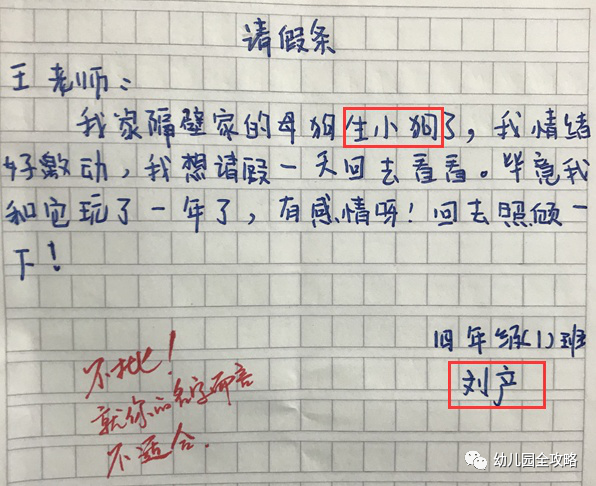 请假条
王老师：
我家隔壁家的母狗生小狗了，我情绪
好激动，我想请假一天回去看看。毕竟我
和它玩了一年了，有感情呀！回去照顾一
下！
四年级(1)班
刘产
不批！
就你的名字而言
不适合.
幼儿园全攻略